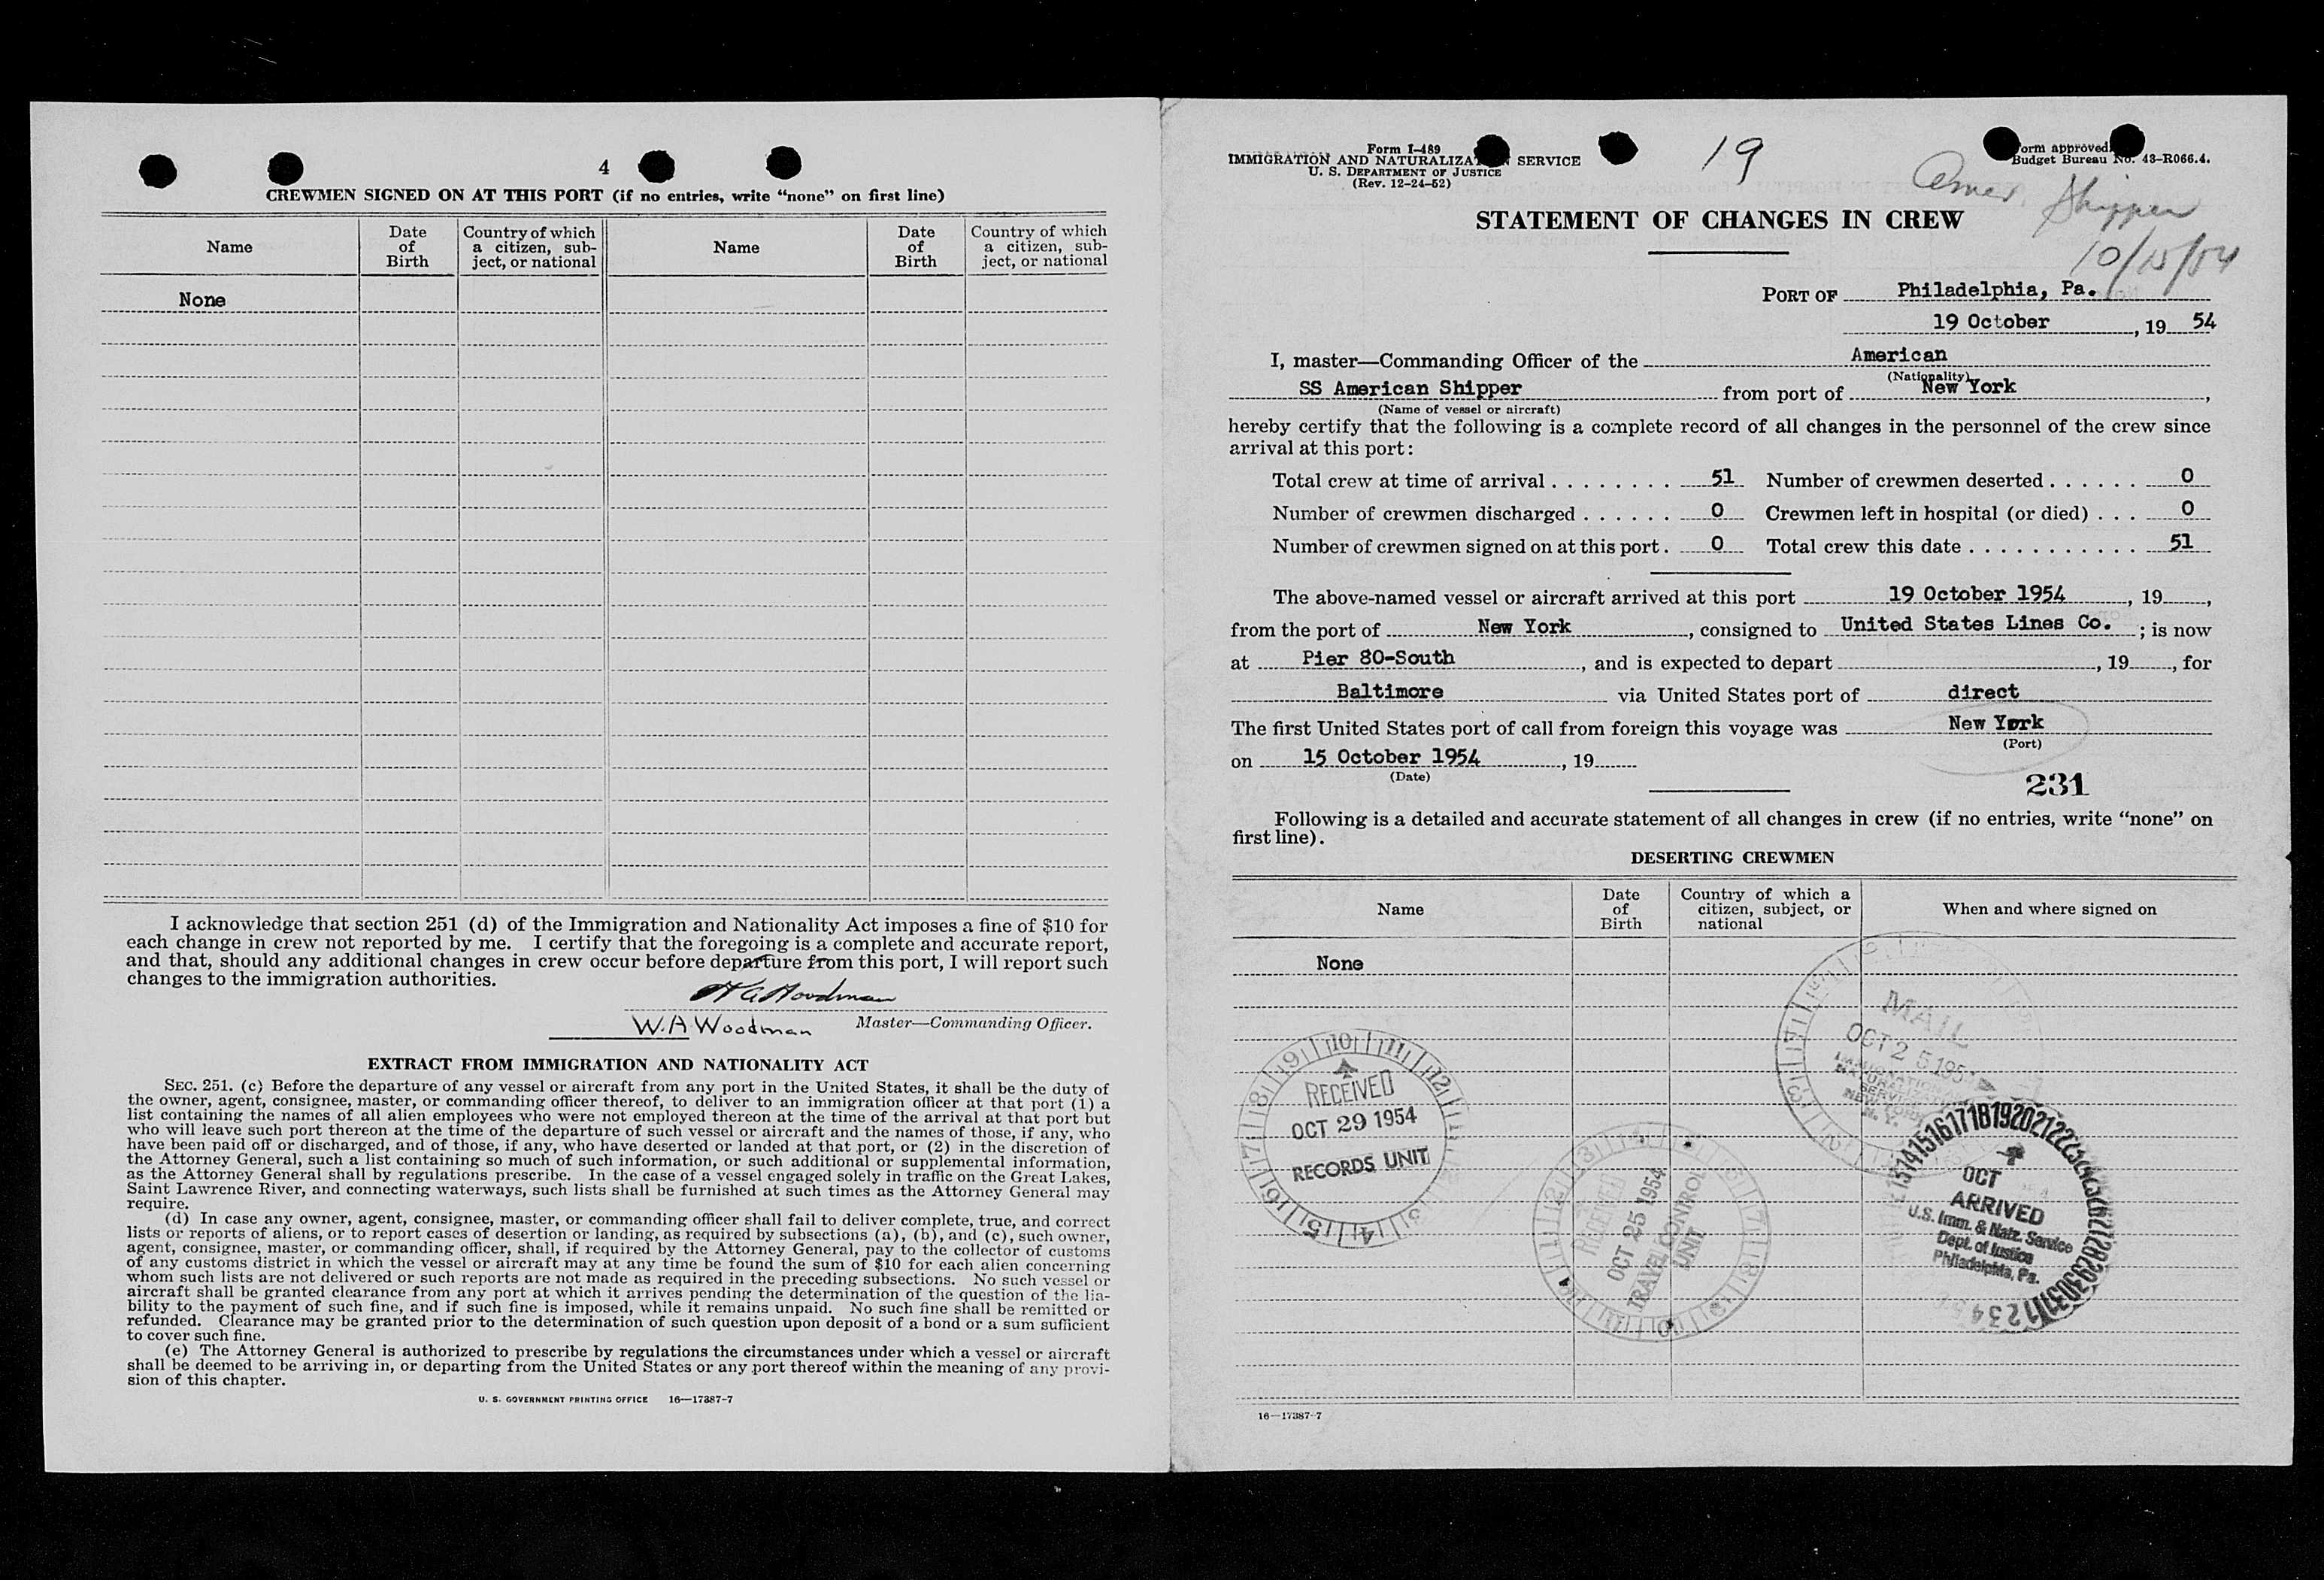 4
CREWMEN SIGNED ON AT THIS PORT (if no entries, write “none” on first line)
Name
Date of Birth
Country of which a citizen, subject, or national
Name
Date of Birth
Country of which a citizen, subject, or national
None
I acknowledge that section 251 (d) of the Immigration and Nationality Act imposes a fine of $10 for
each change in crew not reported by me. I certify that the foregoing is a complete and accurate report,
and that, should any additional changes in crew occur before departure from this port, I will report such
changes to the immigration authorities.
W A Woodman
W.A Woodman Master—Commanding Officer.
EXTRACT FROM IMMIGRATION AND NATIONALITY ACT
SEC. 251. (c) Before the departure of any vessel or aircraft from any port in the United States, it shall be the duty of
the owner, agent, consignee, master, or commanding officer thereof, to deliver to an immigration officer at that port (1) a
list containing the names of all alien employees who were not employed thereon at the time of the arrival at that port but
who will leave such port thereon at the time of the departure of such vessel or aircraft and the names of those, if any, who
have been paid off or discharged, and of those, if any, who have deserted or landed at that port, or (2) in the discretion of
the Attorney General, such a list containing so much of such information, or such additional or supplemental information,
as the Attorney General shall by regulations prescribe. In the case of a vessel engaged solely in traffic on the Great Lakes,
Saint Lawrence River, and connecting waterways, such lists shall be furnished at such times as the Attorney General may
require.
(d) In case any owner, agent, consignee, master, or commanding officer shall fail to deliver complete, true, and correct
lists or reports of aliens, or to report cases of desertion or landing, as required by subsections (a), (b), and (c), such owner,
agent, consignee, master, or commanding officer, shall, if required by the Attorney General, pay to the collector of customs
of any customs district in which the vessel or aircraft may at any time be found the sum of $10 for each alien concerning
whom such lists are not delivered or such reports are not made as required in the preceding subsections. No such vessel or
aircraft shall be granted clearance from any port at which it arrives pending the determination of the question of the lia-
bility to the payment of such fine, and if such fine is imposed, while it remains unpaid. No such fine shall be remitted or
refunded. Clearance may be granted prior to the determination of such question upon deposit of a bond or a sum sufficient
to cover such fine.
(e) The Attorney General is authorized to prescribe by regulations the circumstances under which a vessel or aircraft
shall be deemed to be arriving in, or departing from the United States or any port thereof within the meaning of any provi-
sion of this chapter.
U. S. GOVERNMENT PRINTING OFFICE 16—17387-7
Form I-489
IMMIGRATION AND NATURALIZA SERVICE
U. S. DEPARTMENT OF JUSTICE
(Rev. 12-24-52)
19
orm approved
Budget Bureau No. 43-R066.4.
Amer. Shipper
10/15/54
STATEMENT OF CHANGES IN CREW
PORT OF Philadelphia, Pa.
19 October, 19 54
I, master—Commanding Officer of the American
(Nationality)
SS American Shipper from port of New York,
(Name of vessel or aircraft)
hereby certify that the following is a complete record of all changes in the personnel of the crew since
arrival at this port:
Total crew at time of arrival . . . . . . . . 51 Number of crewmen deserted . . . . . . 0
Number of crewmen discharged . . . . . . 0 Crewmen left in hospital (or died) . . . 0
Number of crewmen signed on at this port. 0 Total crew this date . . . . . . . . . . . 51
The above-named vessel or aircraft arrived at this port 19 October 1954, 19,
from the port of New York, consigned to United States Lines Co. ; is now
at Pier 80-South, and is expected to depart , 19, for
Baltimore via United States port of direct
The first United States port of call from foreign this voyage was New York
(Port)
on 15 October 1954, 19
(Date)
231
Following is a detailed and accurate statement of all changes in crew (if no entries, write “none” on
first line).
DESERTING CREWMEN
Name
Date of Birth
Country of which a citizen, subject, or national
When and where signed on
None
MAIL
OCT 25 195
IMMIGRATION
NATURALIZATION
SERVICE
NEW YORK
N. Y.
RECEIVED
OCT 29 1954
RECORDS UNIT
RECEIVED
OCT 25 1954
TRAVEL CONTROL
UNIT
OCT
ARRIVED
U.S. Imm. & Natz. Service
Dept. of Justice
Philadelphia, Pa.
16—17387-7